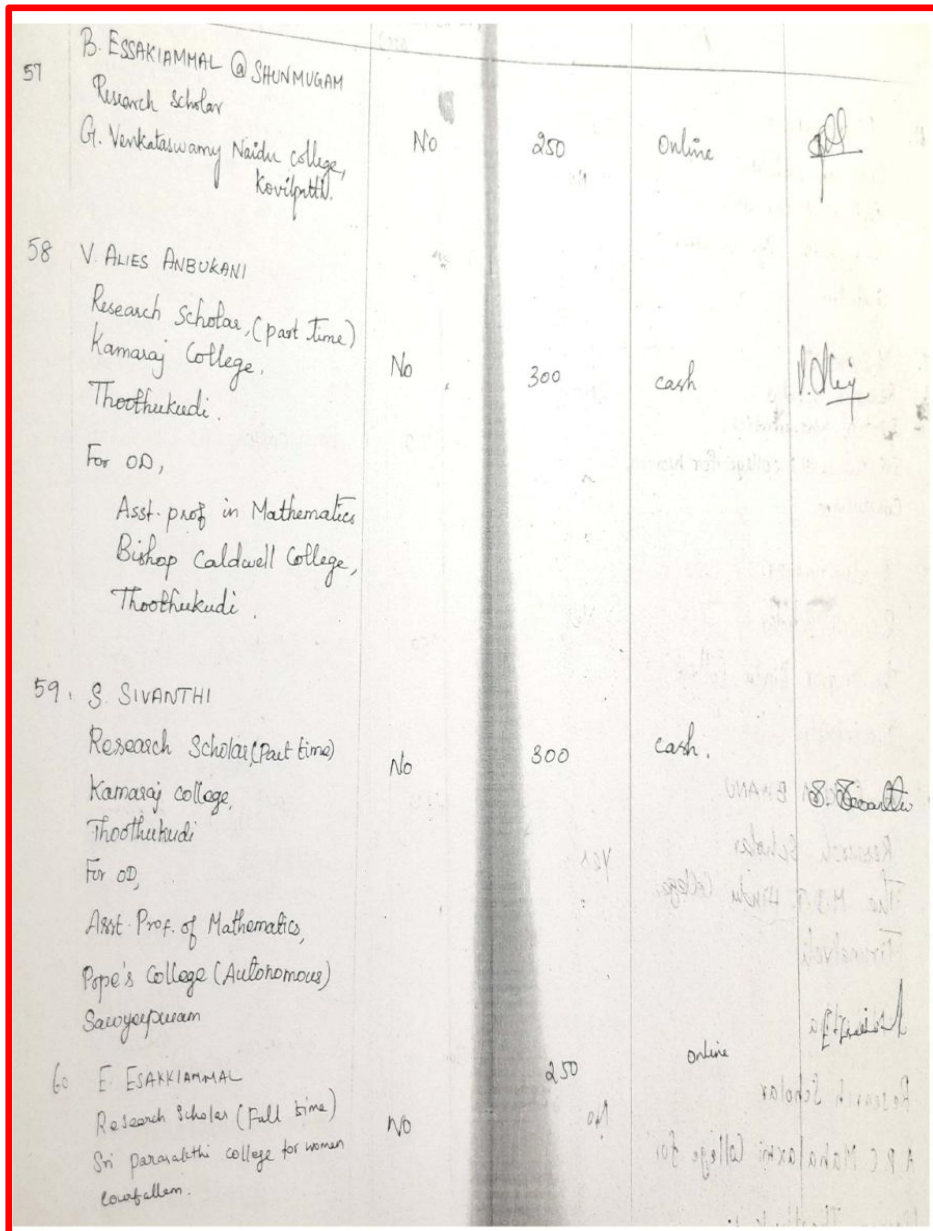 57 B. ESSAKIAMMAL @ SHUNMUGAM
Research Scholar
G. Venkataswamy Naidu College, No 250 Online
Kovilpatti.
58 V. ALIES ANBUKANI
Research Scholar, (part time)
Kamaraj College, No 300 cash
Thoothukudi.
For OD,
Asst. prof in Mathematics
Bishop Caldwell College,
Thoothukudi.
59. S. SIVANTHI
Research Scholar (Part time) No 300 cash.
Kamaraj college,
Thoothukudi
For OD,
Asst. Prof. of Mathematics,
Pope's College (Autonomous)
Sawyerpuram
60 E. ESAKKIAMMAL 250 online
Research Scholar (Full time) No
Sri parasakthi college for women
Courtallam.